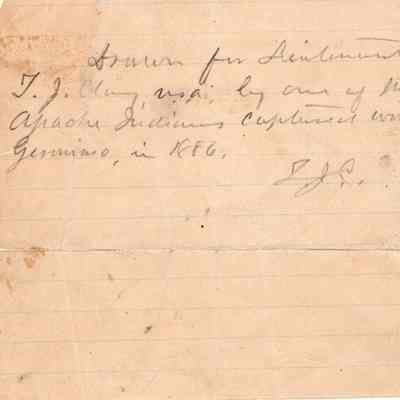 Drawn for Lieutenant
T. J. Clay, usa, by one of the
Apache Indians captured with
Geronimo, in 1886.
T.J.C.